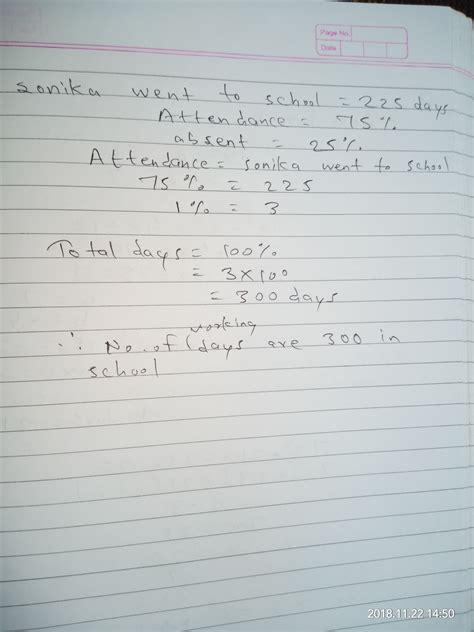 Page No.
Date
Sonika went to school = 225 days
Attendance = 75%
absent = 25%
Attendance = sonika went to school
75% = 225
1% = 3
Total days = 100%
= 3×100
= 300 days
working
∴ No. of (days are 300 in
school
2018.11.22 14:50